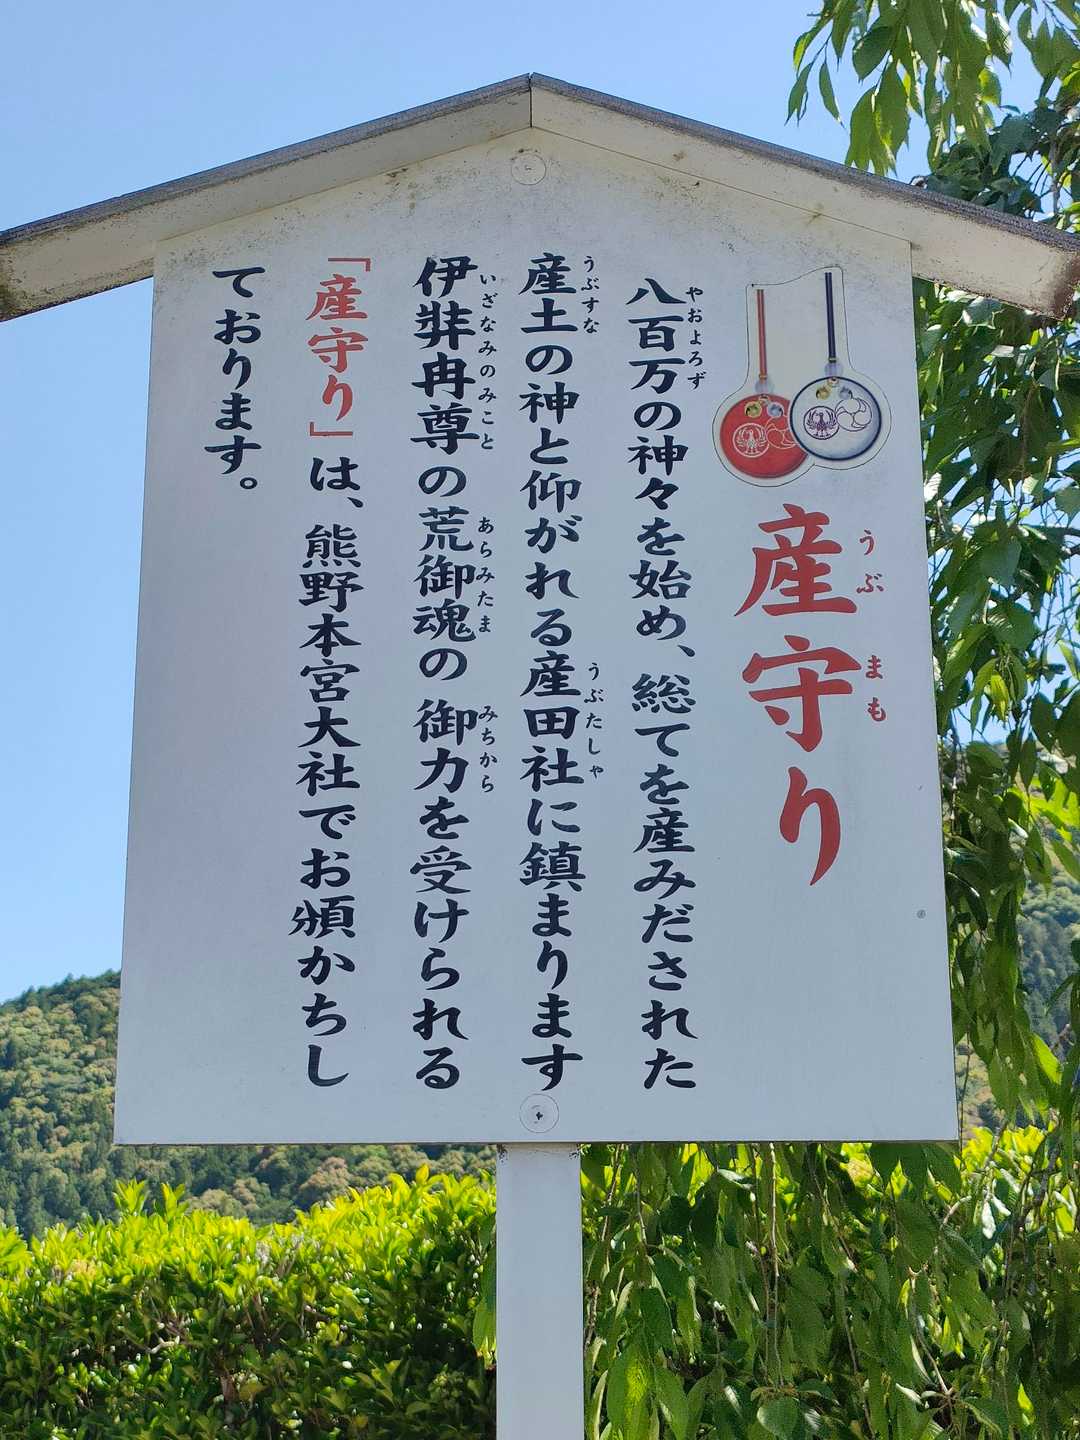 産守り
うぶまも
八百万の神々を始め、総てを産みだされた
やおよろず
産土の神と仰がれる産田社に鎮まります
うぶすな うぶたしゃ
伊弉冉尊の荒御魂の御力を受けられる
いざなみのみこと あらみたま みちから
「産守り」は、熊野本宮大社でお頒かちし
ております。